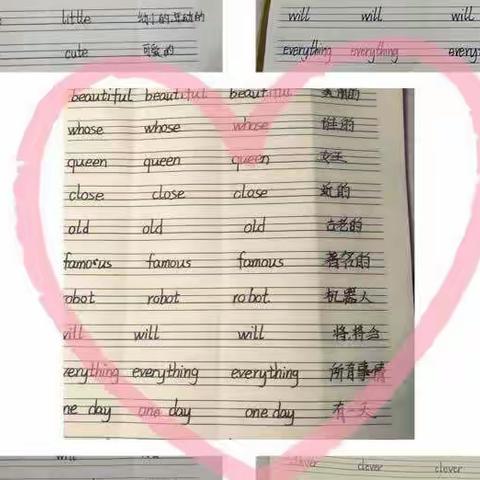 little 幼小的,年幼的
cute 可爱的
will will will
everything everything every
beautiful beautiful beautiful 美丽的
whose whose whose 谁的
queen queen queen 女王
close close close 近的
old old old 古老的
famous famous famous 著名的
robot robot robot. 机器人
will will will 将,将会
verything everything everything 所有事情
ne day one day one day 有一天
clever clever clever